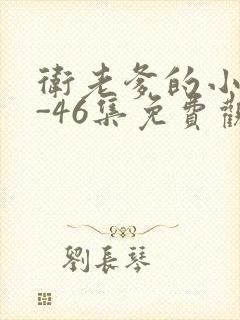 衛老爹的小
-46集免費觀
劉長琴